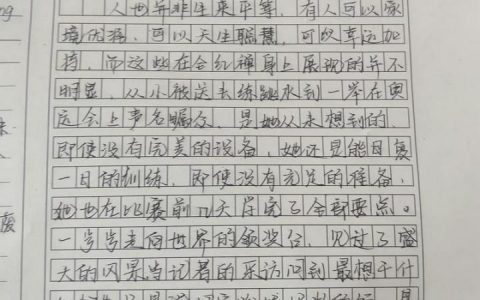 人也并非生来平等，有人可以家
境优渥，可以天生聪慧，可以幸运加
持，而这些在全红禅身上展现的并不
明显，从小被送去练跳水到一举在奥
运会上声名瞩众，是她从未想到的，
即便没有完美的设备，她还是能日复
一日的训练，即便没有充足的准备，
她也在比赛前几天学完了全部要点。
一步步走向世界的领奖台，见过了盛
大的风景当记者的采访问到最想干什